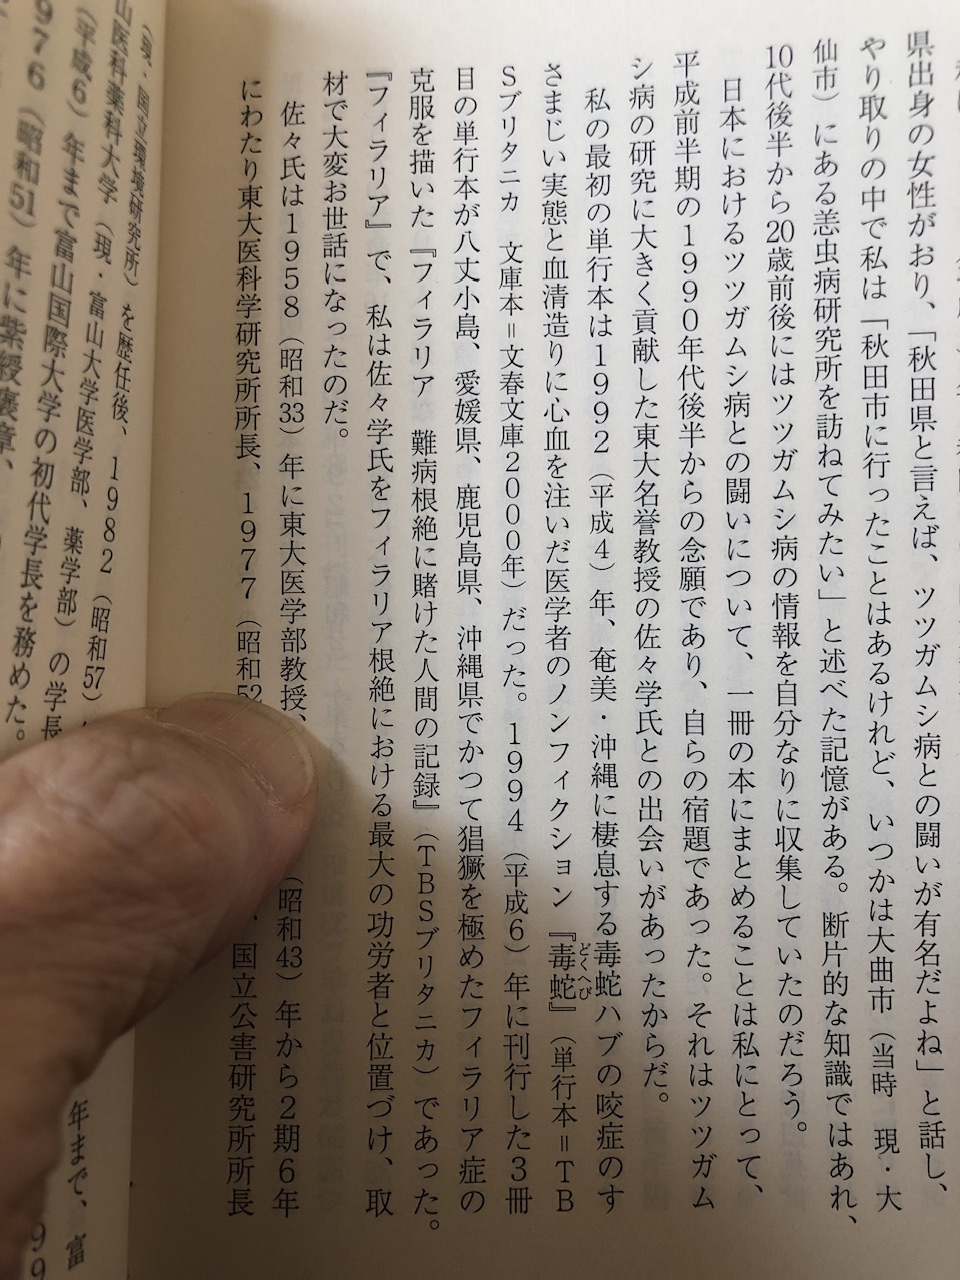 県出身の女性がおり、「秋田県と言えば、ツツガムシ病との闘いが有名だよね」と話し、
やり取りの中で私は「秋田市に行ったことはあるけれど、いつかは大曲市（当時　現・大
仙市）にある恙虫病研究所を訪ねてみたい」と述べた記憶がある。断片的な知識ではあれ、
10代後半から20歳前後にはツツガムシ病の情報を自分なりに収集していたのだろう。
日本におけるツツガムシ病との闘いについて、一冊の本にまとめることは私にとって、
平成前半期の1990年代後半からの念願であり、自らの宿題であった。それはツツガム
シ病の研究に大きく貢献した東大名誉教授の佐々学氏との出会いがあったからだ。
私の最初の単行本は1992（平成4）年、奄美・沖縄に棲息する毒蛇ハブの咬症のす
さまじい実態と血清造りに心血を注いだ医学者のノンフィクション『毒蛇』（単行本＝TB
どくへび
Sブリタニカ　文庫本＝文春文庫2000年）だった。1994（平成6）年に刊行した3冊
目の単行本が八丈小島、愛媛県、鹿児島県、沖縄県でかつて猖獗を極めたフィラリア症の
克服を描いた『フィラリア　難病根絶に賭けた人間の記録』（TBSブリタニカ）であった。
『フィラリア』で、私は佐々学氏をフィラリア根絶における最大の功労者と位置づけ、取
材で大変お世話になったのだ。
佐々氏は1958（昭和33）年に東大医学部教授、（昭和43）年から2期6年
にわたり東大医科学研究所所長、1977（昭和52、国立公害研究所所長
（現・国立環境研究所）を歴任後、1982（昭和57）
山医科薬科大学（現・富山大学医学部、薬学部）の学長
（平成6）年まで富山国際大学の初代学長を務めた。
976（昭和51）年に紫綬褒章、
年まで、富